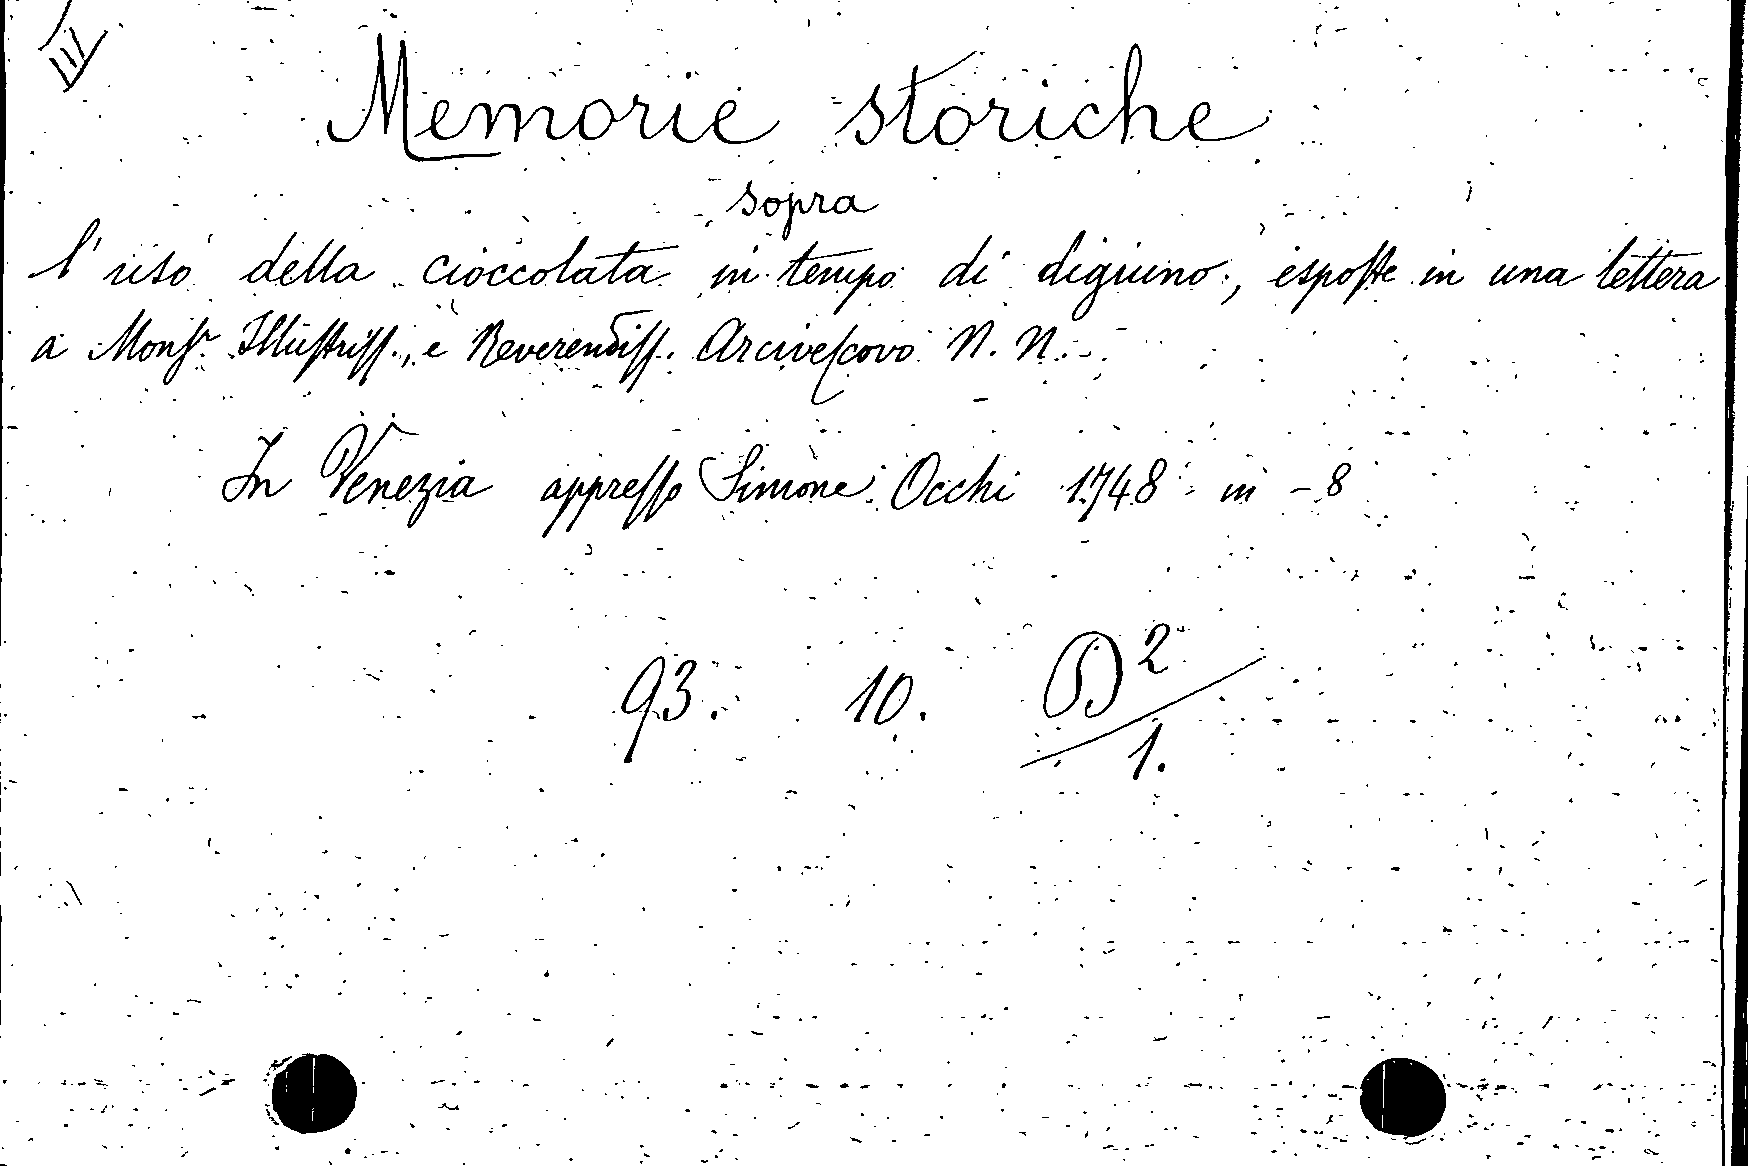 IV
Memorie storiche
sopra
l'uso della cioccolata in tempo di digiuno, esposte in una lettera
a Monsr. Illustriss., e Reverendiss. Arcivescovo N. N.
In Venezia appresso Simone Occhi 1748 in - 8
93. 10. D 2/1.